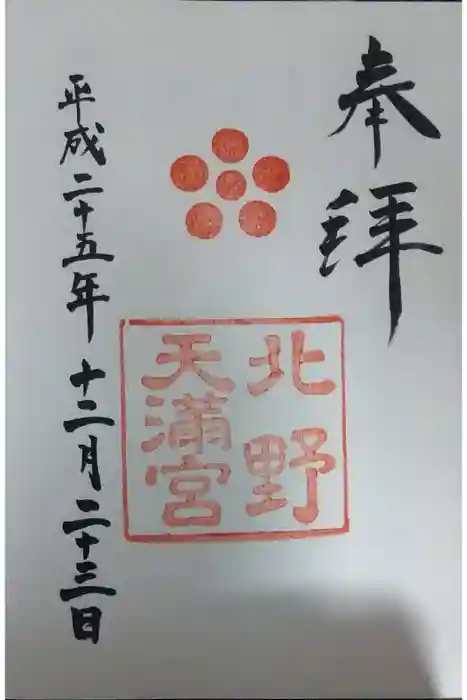 奉拝
北野
天満宮
平成二十五年 十二月 二十三日